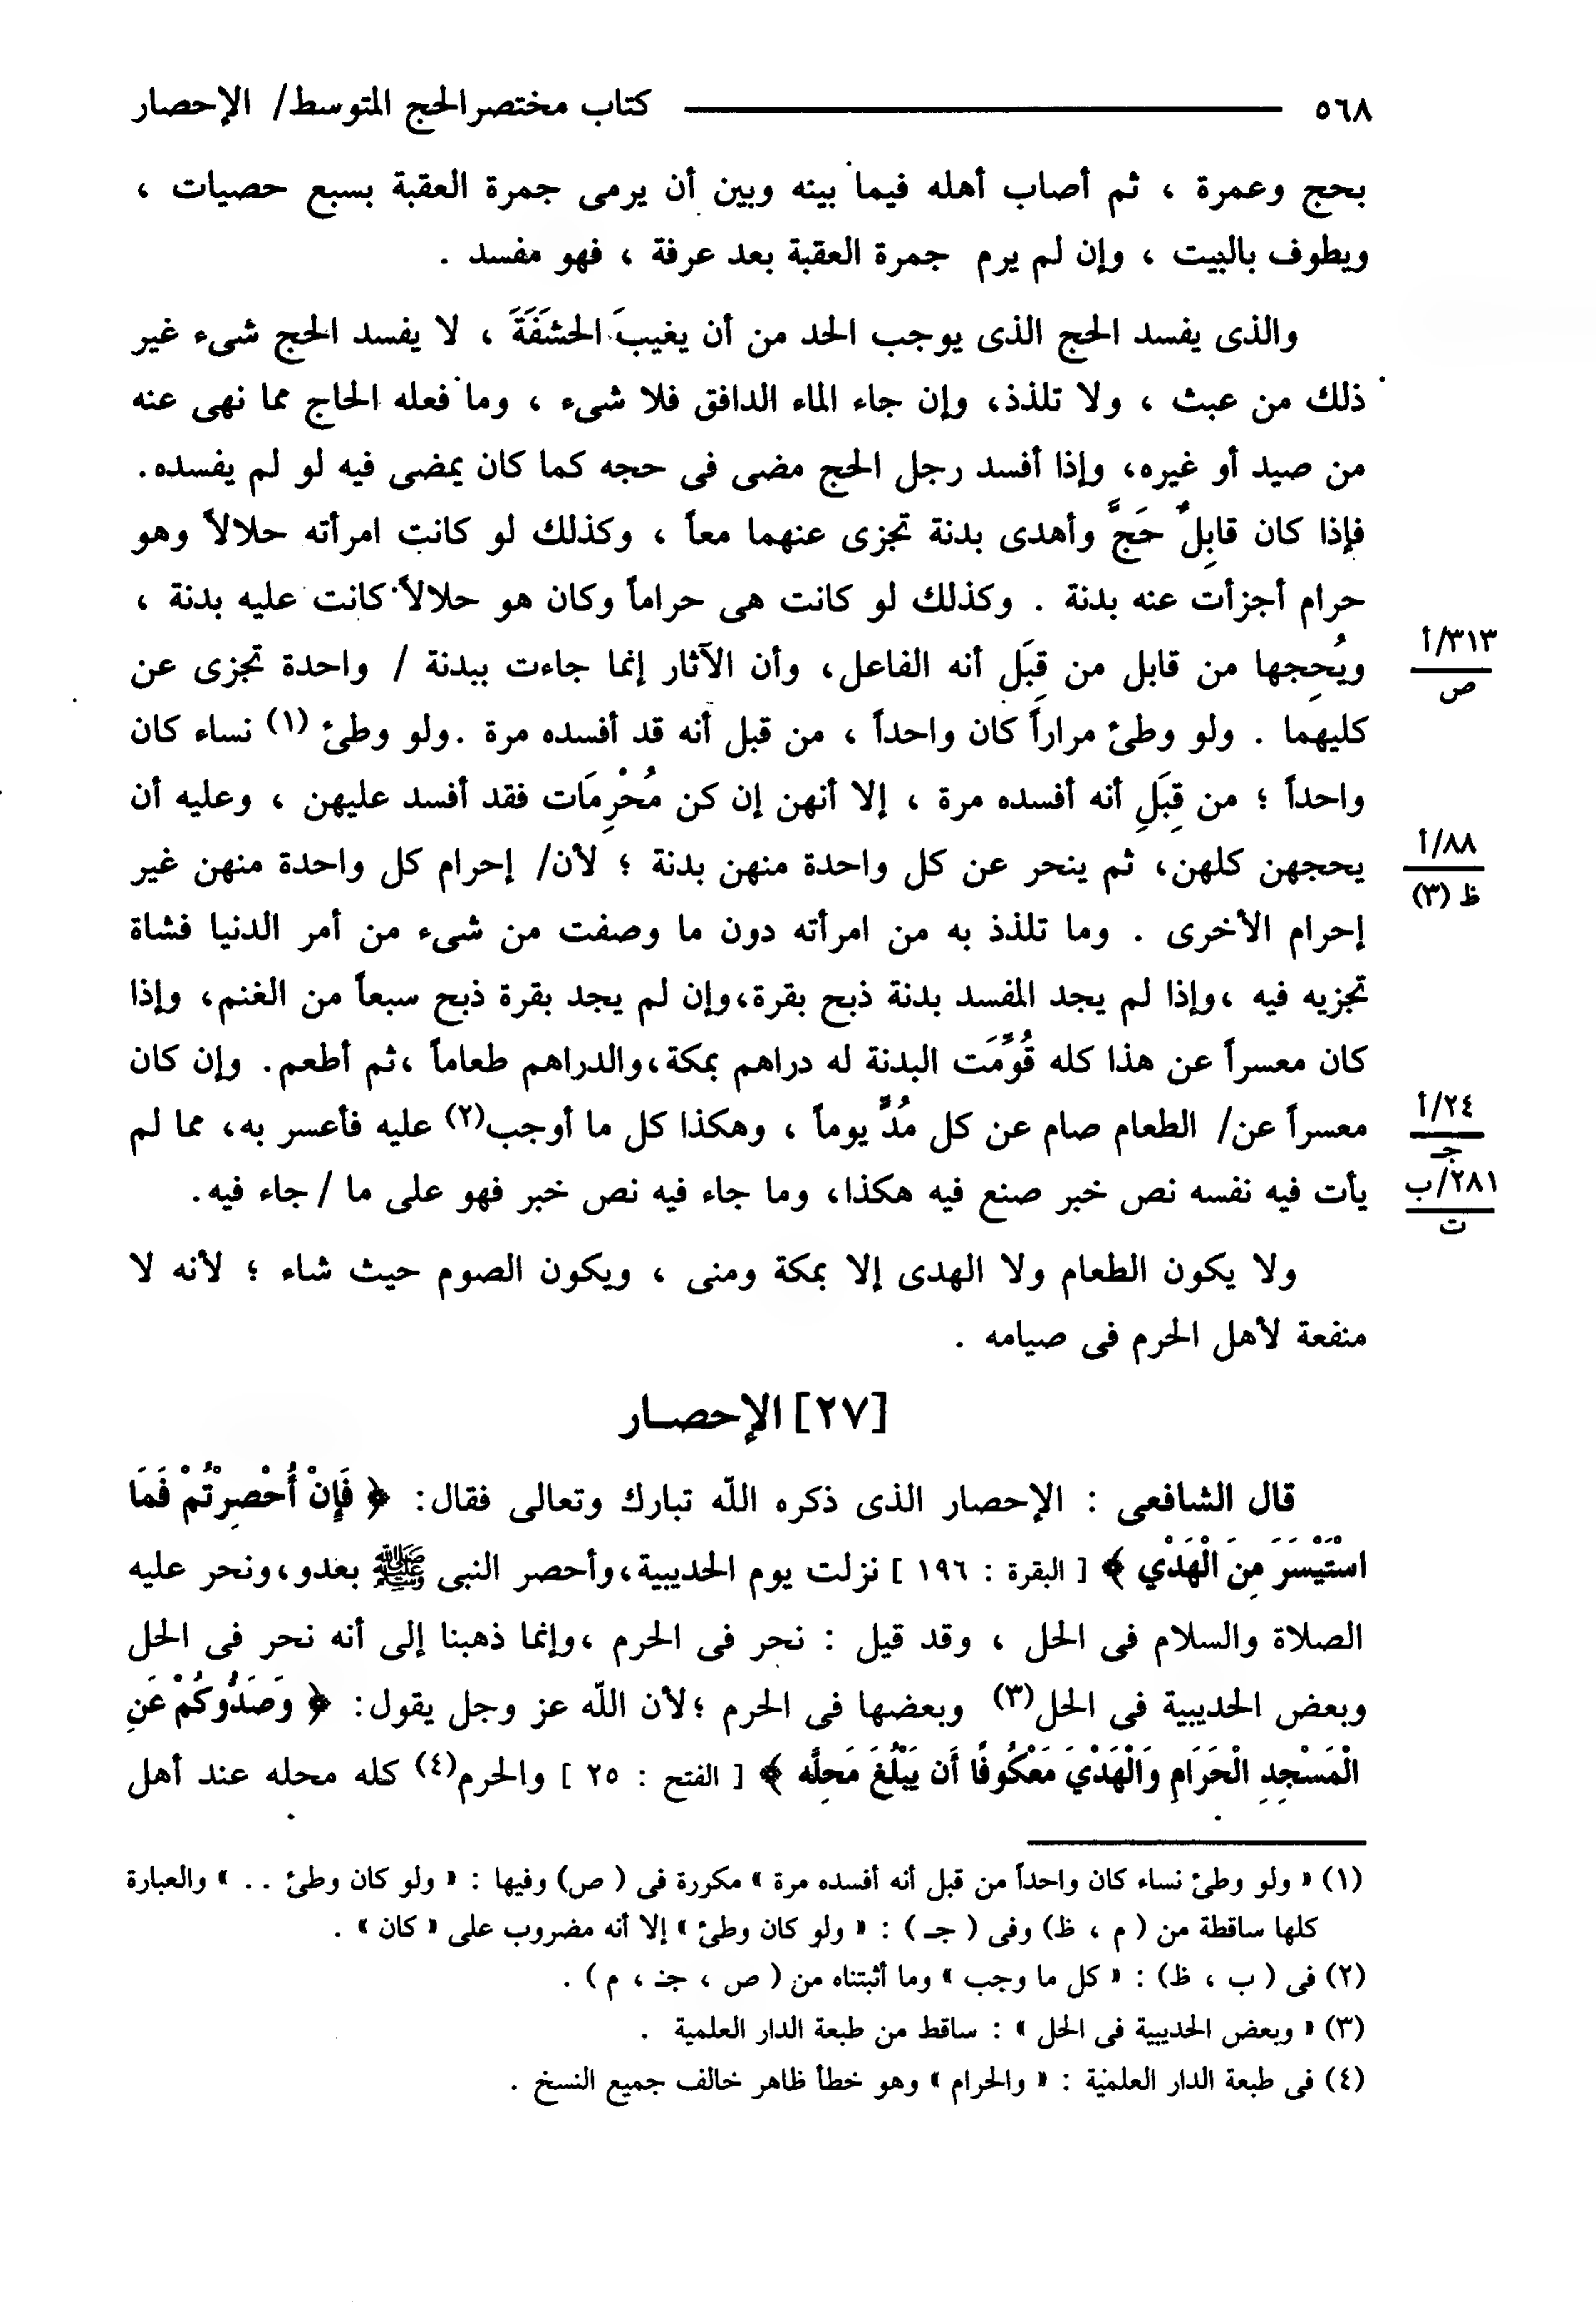 ٥٦٨ كتاب مختصر الحج المتوسط/ الإحصار
بحج وعمرة ، ثم أصاب أهله فيما بينه وبين أن يرمى جمرة العقبة بسبع حصيات ،
ويطوف بالبيت ، وإن لم يرم جمرة العقبة بعد عرفة ، فهو مفسد .
والذى يفسد الحج الذى يوجب الحد من أن يغيبَ الحشَفَةَ ، لا يفسد الحج شىء غير
ذلك من عبث ، ولا تلذذ، وإن جاء الماء الدافق فلا شىء ، وما فعله الحاج مما نهى عنه
من صيد أو غيره، وإذا أفسد رجل الحج مضى فى حجه كما كان يمضى فيه لو لم يفسده.
فإذا كان قابِلٌ حَجَّ وأهدى بدنة تجزى عنهما معاً ، وكذلك لو كانت امرأته حلالاً وهو
حرام أجزأت عنه بدنة . وكذلك لو كانت هى حراماً وكان هو حلالاً كانت عليه بدنة ،
ويُحِجها من قابل من قِبَل أنه الفاعل، وأن الآثار إنما جاءت ببدنة / واحدة تجزى عن
٣١٣/أ
ص
كليهما . ولو وطئ مراراً كان واحداً ، من قبل أنه قد أفسده مرة .ولو وطئ (١) نساء كان
واحداً ؛ من قِبَلِ أنه أفسده مرة ، إلا أنهن إن كن مُحْرِمَات فقد أفسد عليهن ، وعليه أن
يحجهن كلهن، ثم ينحر عن كل واحدة منهن بدنة ؛ لأن/ إحرام كل واحدة منهن غير
٨٨/أ
ظ (٣)
إحرام الأخرى . وما تلذذ به من امرأته دون ما وصفت من شىء من أمر الدنيا فشاة
تجزيه فيه ،وإذا لم يجد المفسد بدنة ذبح بقرة،وإن لم يجد بقرة ذبح سبعاً من الغنم، وإذا
كان معسراً عن هذا كله قُوِّمَت البدنة له دراهم بمكة،والدراهم طعاماً ،ثم أطعم. وإن كان
معسراً عن/ الطعام صام عن كل مُدٍّ يوماً ، وهكذا كل ما أوجب(٢) عليه فأعسر به، مما لم
٢٤/أ
جـ
يأت فيه نفسه نص خبر صنع فيه هكذا، وما جاء فيه نص خبر فهو على ما / جاء فيه.
٢٨١/ب
ت
ولا يكون الطعام ولا الهدى إلا بمكة ومنى ، ويكون الصوم حيث شاء ؛ لأنه لا
منفعة لأهل الحرم فى صيامه .
[٢٧] الإحصـار
قال الشافعى : الإحصار الذى ذكره اللّه تبارك وتعالى فقال: ﴿ فَإِنْ أُحْصِرْتُمْ فَمَا
اسْتَيْسَرَ مِنَ الْهَدْيِ ﴾ [ البقرة : ١٩٦ ] نزلت يوم الحديبية،وأحصر النبى ﷺ بعدو،ونحر عليه
الصلاة والسلام فى الحل ، وقد قيل : نحر فى الحرم ،وإنما ذهبنا إلى أنه نحر فى الحل
وبعض الحديبية فى الحل(٣) وبعضها فى الحرم ؛لأن اللّه عز وجل يقول: ﴿ وَصَدُّوكُمْ عَنِ
الْمَسْجِدِ الْحَرَامِ وَالْهَدْيَ مَعْكُوفًا أَن يَبْلُغَ مَحِلَّه ﴾ [ الفتح : ٢٥ ] والحرم(٤) كله محله عند أهل
(١) « ولو وطئ نساء كان واحداً من قبل أنه أفسده مرة » مكررة فى ( ص) وفيها : « ولو كان وطئ . . » والعبارة
كلها ساقطة من ( م ، ظ) وفى ( جـ ) : « ولو كان وطئ » إلا أنه مضروب على « كان » .
(٢) فى ( ب ، ظ) : « كل ما وجب » وما أثبتناه من ( ص ، جـ ، م ) .
(٣) « وبعض الحديبية فى الحل » : ساقط من طبعة الدار العلمية .
(٤) فى طبعة الدار العلمية : « والحرام » وهو خطأ ظاهر خالف جميع النسخ .